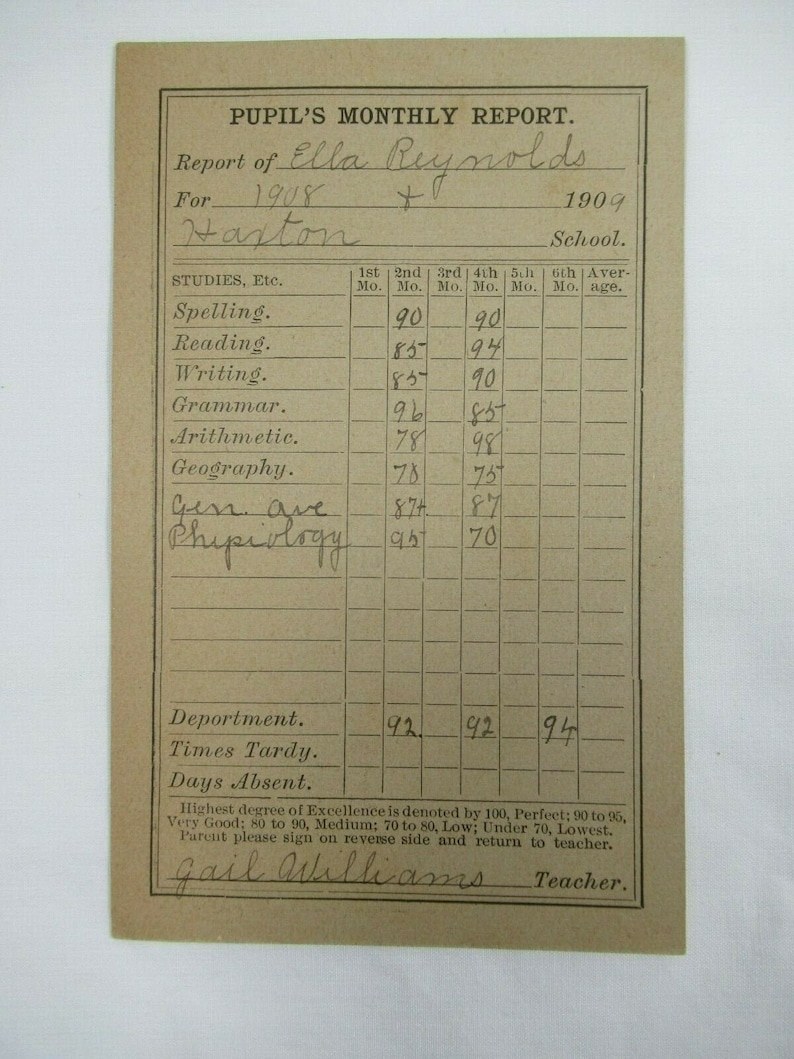 PUPIL'S MONTHLY REPORT.
Report of Ella Reynolds
For 1908 + 1909
Haxton School.
STUDIES, Etc. 1st Mo. 2nd Mo. 3rd Mo. 4th Mo. 5th Mo. 6th Mo. Aver-age.
Spelling. 90 90
Reading. 85 94
Writing. 85 90
Grammar. 96 85
Arithmetic. 78 98
Geography. 78 75
Gen. ave 87+ 87
Physiology 95 70
Deportment. 92. 92 94
Times Tardy.
Days Absent.
Highest degree of Excellence is denoted by 100, Perfect; 90 to 95,
Very Good; 80 to 90, Medium; 70 to 80, Low; Under 70, Lowest.
Parent please sign on reverse side and return to teacher.
Gail Williams Teacher.